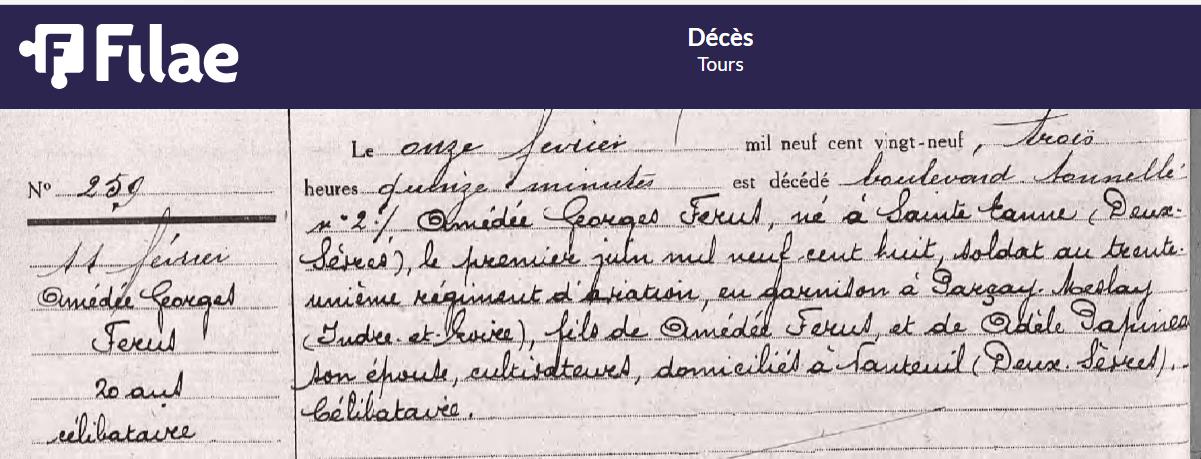 Filae
Décès
Tours
Nº 259
11 février
Amédée Georges
Ferus
20 ans
célibataire
Le onze février mil neuf cent vingt-neuf, trois
heures quinze minutes est décédé boulevard Tonnellé
nº 2 / Amédée Georges Ferus, né à Sainte Eanne (Deux-
Sèvres), le premier juin mil neuf cent huit, soldat au trente-
unième régiment d'aviation, en garnison à Parçay-Meslay
(Indre-et-Loire), fils de Amédée Ferus, et de Adèle Papineau
son épouse, cultivateurs, domiciliés à Nanteuil (Deux-Sèvres).
Célibataire.